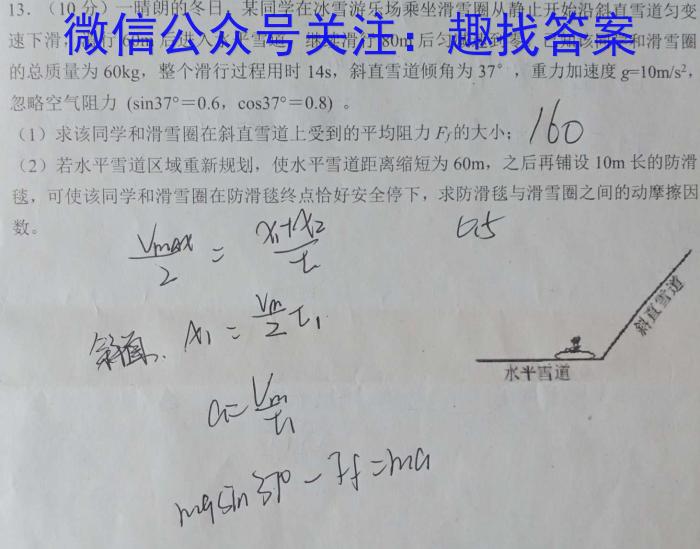 13.（10 分）一晴朗的冬日，某同学在冰雪游乐场乘坐滑雪圈从静止开始沿斜直雪道匀变
微信公众号关注：趣找答案
速下滑，滑行 60m 后进入水平雪道，继续滑行 80m 后匀
和滑雪圈
的总质量为 60kg，整个滑行过程用时 14s，斜直雪道倾角为 37°，重力加速度 g=10m/s²，
忽略空气阻力 (sin37°＝0.6，cos37°＝0.8) 。
（1）求该同学和滑雪圈在斜直雪道上受到的平均阻力 Ff 的大小； 160
（2）若水平雪道区域重新规划，使水平雪道距离缩短为 60m，之后再铺设 10m 长的防滑
毯，可使该同学和滑雪圈在防滑毯终点恰好安全停下，求防滑毯与滑雪圈之间的动摩擦因
数。
0.5
Vmax/2 = x₁+x₂/t
斜面、 x₁ = Vm/2 t₁
a = Vm/t₁
mgsin37° − Ff = ma
斜直雪道
水平雪道